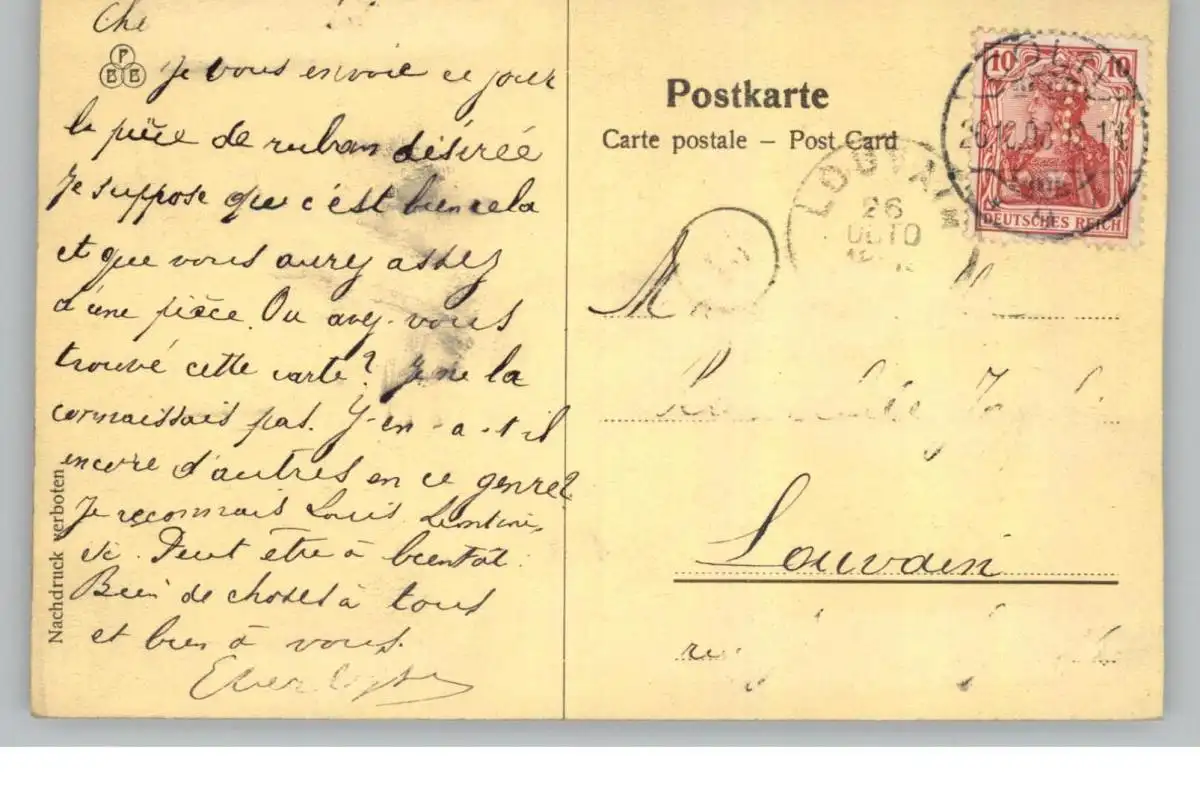 Che
Je vous envoie ce jour
la pièce de ruban désirée
Je suppose que c'est bien cela
et que vous aurez assez
d'une pièce. Ou avez-vous
trouvé cette carte? Je ne la
connaissais pas. Y-en-a-t-il
encore d'autres en ce genre?
Je reconnais Louis
Peut être à bientôt.
Bien de choses à tous
et bien à vous.
Nachdruck verboten
Postkarte
Carte postale – Post Card
10 10
DEUTSCHES REICH
LOUVAIN
26
OCTO
M
Louvain